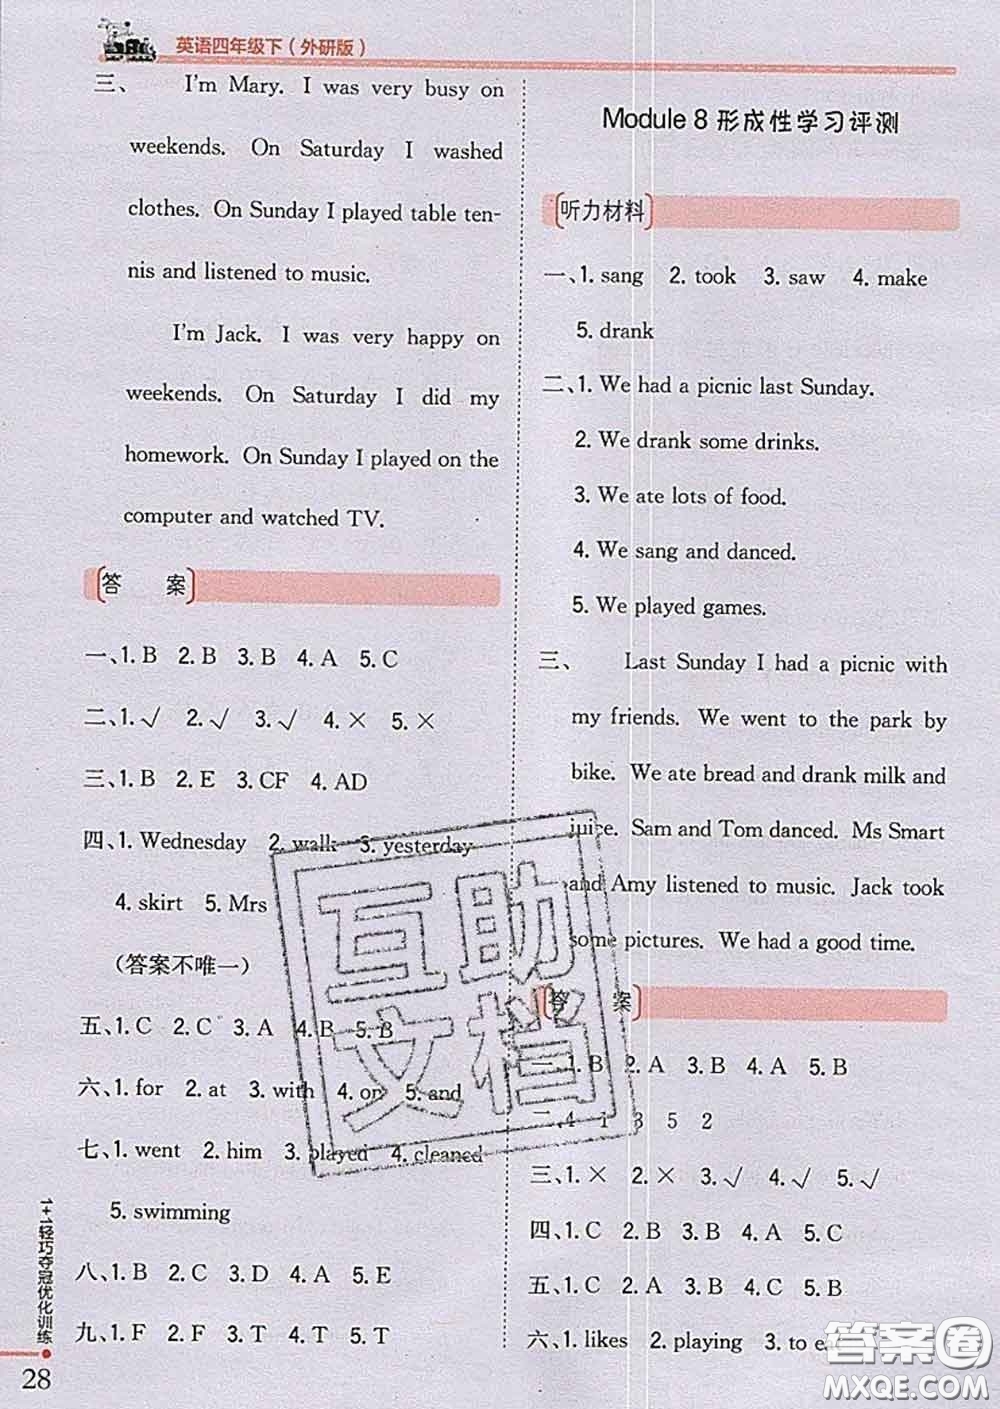 英语四年级下（外研版）
三、 I'm Mary. I was very busy on
weekends. On Saturday I washed
clothes. On Sunday I played table ten-
nis and listened to music.
I'm Jack. I was very happy on
weekends. On Saturday I did my
homework. On Sunday I played on the
computer and watched TV.
答 案
一、1. B 2. B 3. B 4. A 5. C
二、1. √ 2. √ 3. √ 4. × 5. ×
三、1. B 2. E 3. CF 4. AD
四、1. Wednesday 2. walk 3. yesterday
4. skirt 5. Mrs
（答案不唯一）
五、1. C 2. C 3. A 4. B 5. B
六、1. for 2. at 3. with 4. on 5. and
七、1. went 2. him 3. played 4. cleaned
5. swimming
八、1. B 2. C 3. D 4. A 5. E
九、1. F 2. F 3. T 4. T 5. T
Module 8 形成性学习评测
听力材料
一、1. sang 2. took 3. saw 4. make
5. drank
二、1. We had a picnic last Sunday.
2. We drank some drinks.
3. We ate lots of food.
4. We sang and danced.
5. We played games.
三、 Last Sunday I had a picnic with
my friends. We went to the park by
bike. We ate bread and drank milk and
juice. Sam and Tom danced. Ms Smart
and Amy listened to music. Jack took
some pictures. We had a good time.
答 案
一、1. B 2. A 3. B 4. A 5. B
二、4 1 3 5 2
三、1. × 2. × 3. √ 4. √ 5. √
四、1. C 2. B 3. B 4. A 5. C
五、1. C 2. A 3. B 4. C 5. B
六、1. likes 2. playing 3. to
互助
文档
1+1轻巧夺冠优化训练
28
答案圈
MXQE.COM